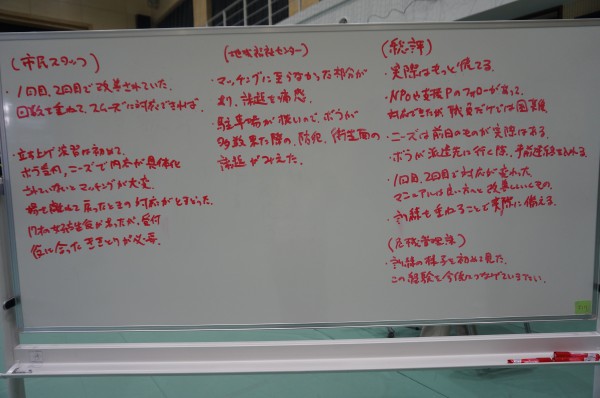 (市民スタッフ)
・1回目、2回目で改善されていた。
回数を重ねて、スムーズに対応できれば。
・立ち上げ演習は初めて。
ボラ受付、ニーズで内容が具体化
されていないとマッチングが大変。
場を離れて戻ったときの対応がとまどった。
内わ女社生食が あったが、受付
役に合った ききとりが必要。
(地域福祉センター)
・マッチングに至らなかった部分が
あり、課題を痛感。
・駐車場が狭いので、ボラが
多数来た際の、防犯、衛生面の
課題がみえた。
(総評)
・実際はもっと慌てる。
・NPOや支援Pのフォローがあって、
対応できたが、職員だけでは困難
・ニーズは前日のものが実際はある。
・ボラが派遣先に行く際、事前連絡を入れる。
・1回目、2回目で対応が変わった
マニュアルは良い方へと改善しいくもの。
・訓練を重ねることで実際に備える。
(危機管理課)
・訓練の様子を初めて見た。
この経験を今後につなげていきたい。